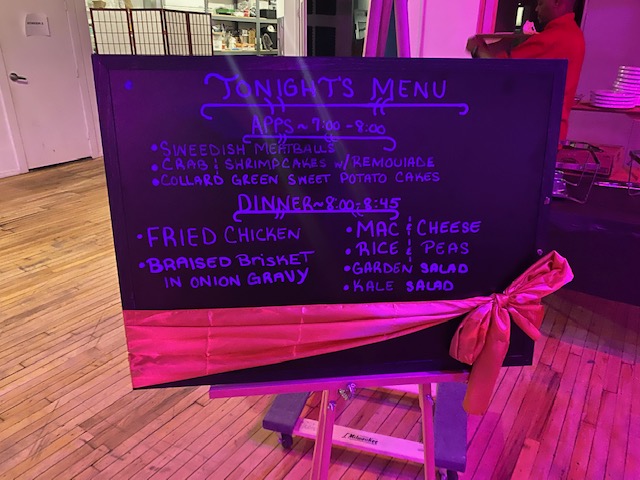 TONIGHTS MENU
APPS ~ 7:00 - 8:00
• SWEEDISH MEATBALLS
• CRAB & SHRIMP CAKES W/ REMOULADE
• COLLARD GREEN SWEET POTATO CAKES
DINNER ~ 8:00 - 8:45
• FRIED CHICKEN
• BRAISED BRISKET
IN ONION GRAVY
• MAC & CHEESE
• RICE & PEAS
• GARDEN SALAD
• KALE SALAD
Milwaukee